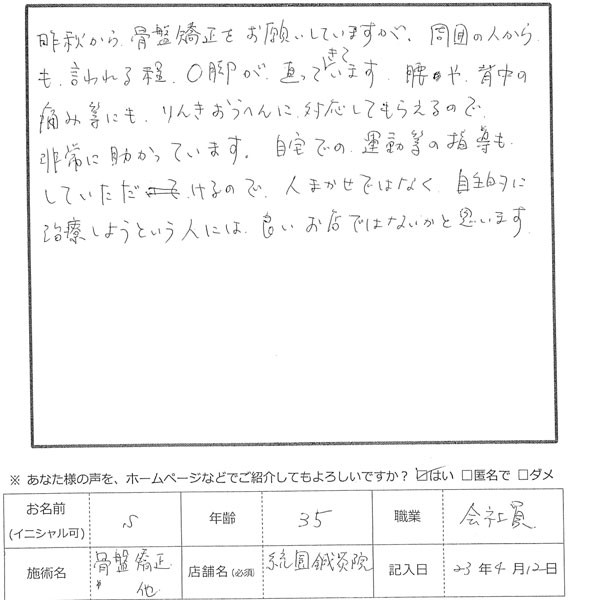 昨秋から、骨盤矯正をお願いしていますが、周囲の人から
も、言われる程、O脚が、直ってきています。腰や、背中の
痛み等にも、りんきおうへんに、対応してもらえるので、
非常に助かっています。自宅での、運動等の指導も
していただけるので、人まかせではなく、自主的に
治療しようという人には、良いお店ではないかと思います。
※ あなた様の声を、ホームページなどでご紹介してもよろしいですか？ ☑はい □匿名で □ダメ
お名前
(イニシャル可) S 年齢 35 職業 会社員
施術名 骨盤矯正 他 店舗名 (必須) 鍼灸院 記入日 23 年 4 月 12 日